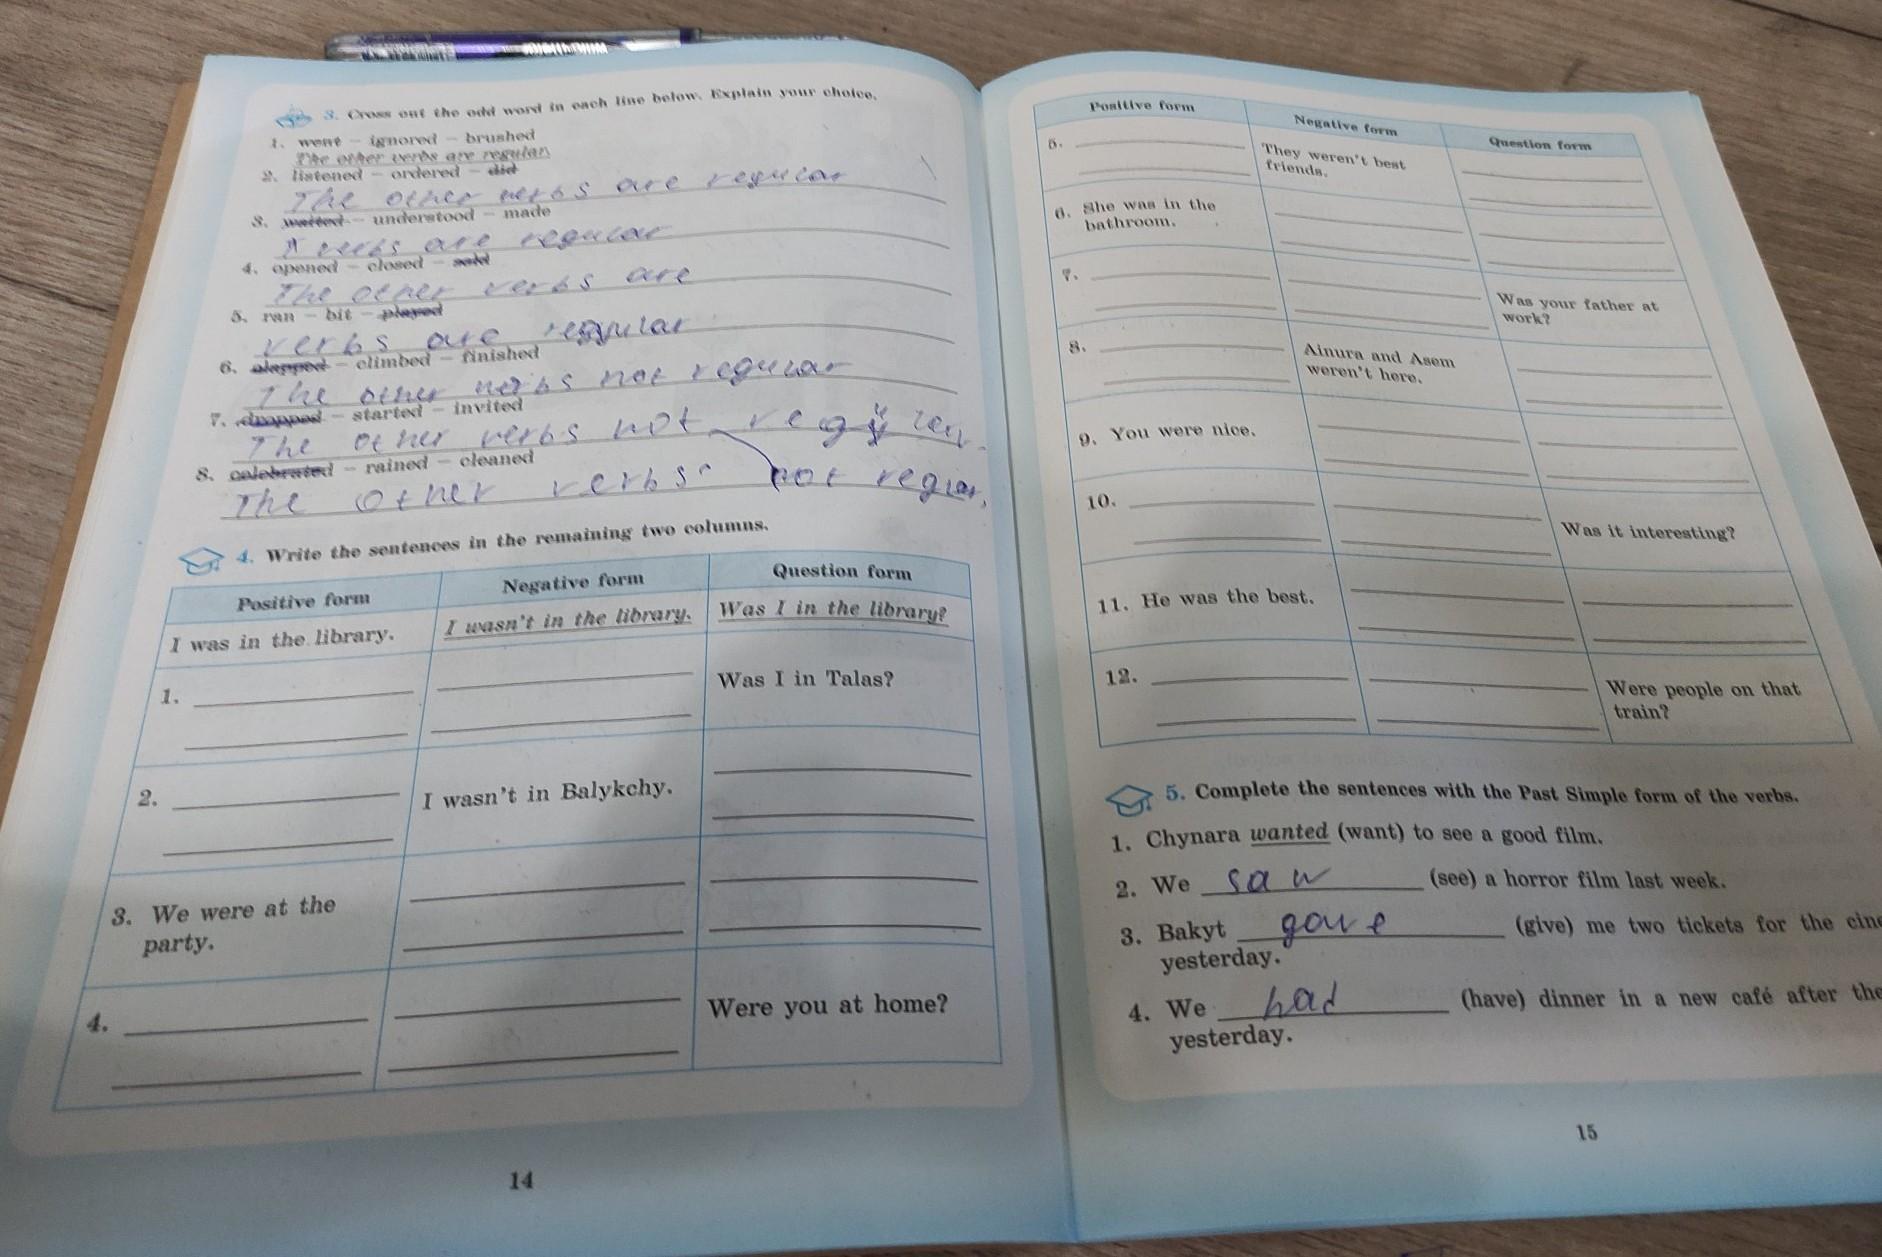 3. Cross out the odd word in each line below. Explain your choice.
1. went – ignored – brushed
The other verbs are regular.
2. listened – ordered – did
The other verbs are regular
3. waited – understood – made
verbs are regular
4. opened – closed – sold
The other verbs are
5. ran – bit – played
verbs are regular
6. – climbed – finished
The other verbs not regular
7. dropped – started – invited
The other verbs not
8. celebrated – rained – cleaned
The other verbs not
4. Write the sentences in the remaining two columns.
Positive form Negative form Question form
I was in the library. I wasn't in the library. Was I in the library?
1. Was I in Talas?
2. I wasn't in Balykchy.
3. We were at the
party.
4. Were you at home?
14
Positive form Negative form Question form
5. They weren't best
friends.
6. She was in the
bathroom.
7. Was your father at
work?
8. Ainura and Asem
weren't here.
9. You were nice.
10. Was it interesting?
11. He was the best.
12. Were people on that
train?
5. Complete the sentences with the Past Simple form of the verbs.
1. Chynara wanted (want) to see a good film.
2. We saw (see) a horror film last week.
3. Bakyt gave (give) me two tickets for the cine
yesterday.
4. We had (have) dinner in a new café after the
yesterday.
15